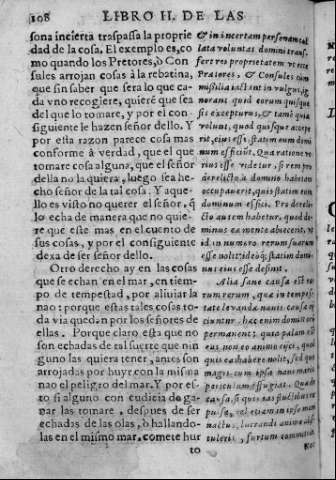 108 LIBRO II. DE LAS
sona incierta traspassa la proprie
dad de la cosa. El exemplo es, co
mo quando los Pretores, ò Con
sules arrojan cosas à la rebatina,
que sin saber que sera lo que ca-
da vno recogiere, quieré que sea
del que lo tomare, y por el con-
siguiente le hazen señor dello. Y
por esta razon parece cosa mas
conforme à verdad, que el que
tomare cosa alguna, que el señor
della no la quiera, luego sea he-
cho señor de la tal cosa. Y aque-
llo es visto no querer el señor, q̃
lo echa de manera que no quie-
re que este mas en el cuento de
sus cosas, y por el consiguiente
dexa de ser señor dello.
Otro derecho ay en las cosas
que se echan en el mar, en tiem-
po de tempestad, por aliuiar la
nao: porque estas tales cosas to-
da via quedan por los señores de
ellas. Porque claro esta que no
son echadas de tal suerte que nin
guno las quiera tener, antes son
arrojadas por huyr con la misma
nao el peligro del mar. Y por es-
to si alguno con cudicia de ga-
nar las tomare, despues de ser
echadas de las olas, ò hallando-
las en el mismo mar, comete hur
to
& in incertam personam col
lata voluntas domini trans-
fert rei proprietatem vt ecce
Prætores, & Consules cum
missilia iactant in vulgus, ig
norant quid eorum quisque
sit excepturus, & tamē quia
volunt, quod quisque accepe
rit, eius esse, statim eum domi
num efficiūt. Qua ratione ve
rius esse videtur, si rem pro
derelicto à domino habitam
occupauerit, quis statim eum
dominum effici. Pro dereli-
cto autem habetur, quod do-
minus ea mente abiecerit, vt
id in numero rerum suarum
esse nolit, ideoq́; statim domi
nus eius esse desinit.
Alia sane causa est ea
rum rerum, quæ in tempes-
tate leuandæ nauis causa ej
ciuntur. hæ enim dominorū
permanent. quia palam est
eas, non eo animo ejci, quod
quis eas habere nolit, sed quo
magis cum ipsa naui maris
periculum effugiat. Qua de
causa, si quis eas fluctibus ex
pulsas, vel etiam in ipso mari
nactus, lucrandi animo abs-
tulerit, furtum committit.